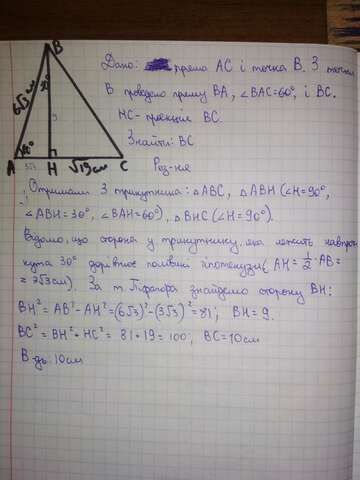 B
6√3 см
30°
9
60°
A
3√3
H
√19 см
C
Дано: пряма AC і точка B. З точки
B проведено пряму BA, ∠BAC=60°, і BC.
HC - проекція BC.
Знайти: BC
Роз-ння
Отримали 3 трикутника: △ABC, △ABH (∠H=90°,
∠ABH=30°, ∠BAH=60°), △BHC (∠H=90°).
Відомо, що сторона у трикутнику, яка лежить навпроти
кута 30° дорівнює половині гіпотенузи (AH=½·AB=
=3√3см). За т. Піфагора знайдемо сторону BH:
BH²=AB²-AH²=(6√3)²-(3√3)²=81; BH=9.
BC²=BH²+HC²= 81+19=100, BC=10см
В-дь: 10см